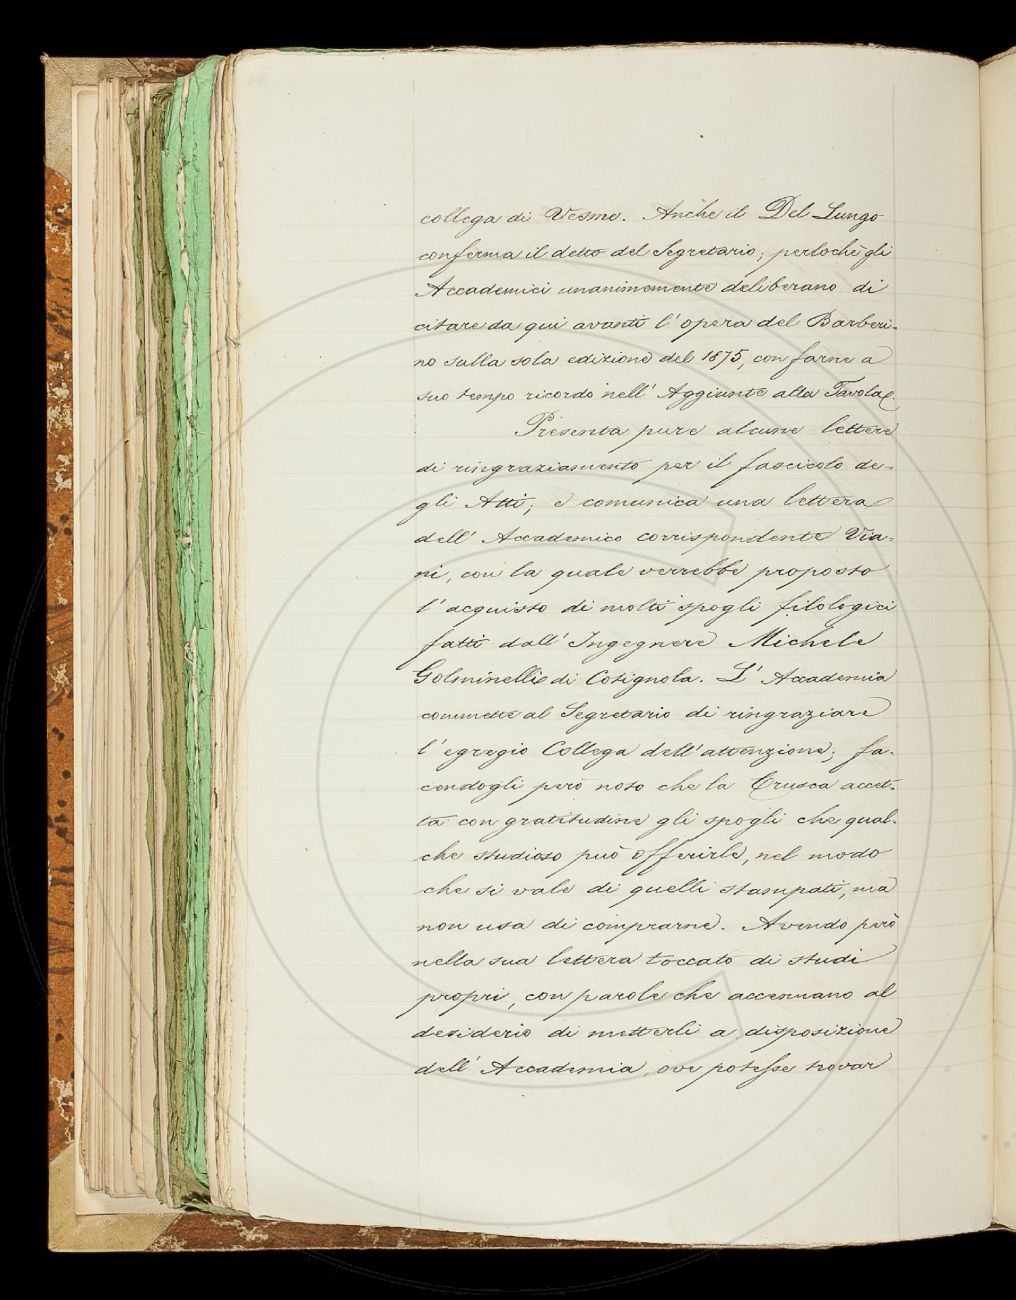 collega di Vesme. Anche il Del Lungo
conferma il detto del Segretario; perlochè gli
Accademici unanimemente deliberano di
citare da qui avanti l'opera del Barberi-
no sulla sola edizione del 1875, con farne a
suo tempo ricordo nell'Aggiunte alla Tavola.
Presenta pure alcune lettere
di ringraziamento per il fascicolo de-
gli Atti; e comunica una lettera
dell'Accademico corrispondente Via-
ni, con la quale verrebbe proposto
l'acquisto di molti spogli filologici
fatti dall'Ingegnere Michele
Golminelli di Cotignola. L'Accademia
commette al Segretario di ringraziare
l'egregio Collega dell'attenzione; fa-
cendogli però noto che la Crusca accet-
ta con gratitudine gli spogli che qual-
che studioso può offerirle, nel modo
che si vale di quelli stampati, ma
non usa di comprarne. Avendo però
nella sua lettera toccato di studi
propri, con parole che accennano al
desiderio di metterli a disposizione
dell'Accademia, ove potesse trovar